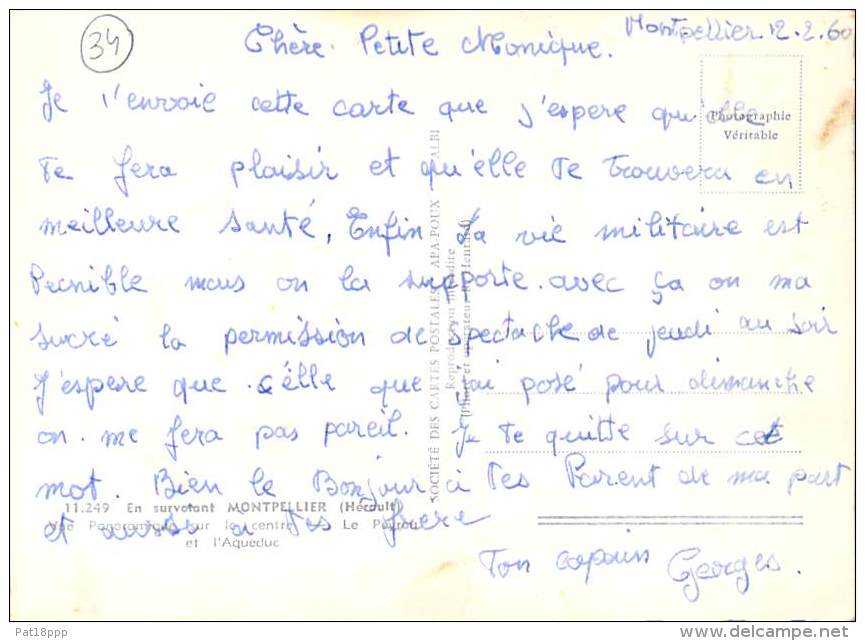 34
Montpellier 12.2.60
Chère Petite Monique.
Je t'envoie cette carte que j'espere qu'elle
te fera plaisir et qu'elle te trouvera en
meilleure santé, Enfin la vie militaire est
Pecnible mais on la supporte. avec ça on ma
sucré la permission de spectache de jeudi au soir
J'espere que célle que j'ai posé pour dimanche
on me fera pas pareil. Je te quitte sur cet
mot. Bien le Bonjour à tes Parent de ma part
et aussi à tes frere
Ton copain Georges.
Photographie
Véritable
SOCIÉTÉ DES CARTES POSTALES APA-POUX ALBI
Reproduction interdite
11.249 En survolant MONTPELLIER (Hérault)
Vue Panoramique sur le centre Le Peyrou
et l'Aqueduc
Pat18ppp
www.delcampe.net